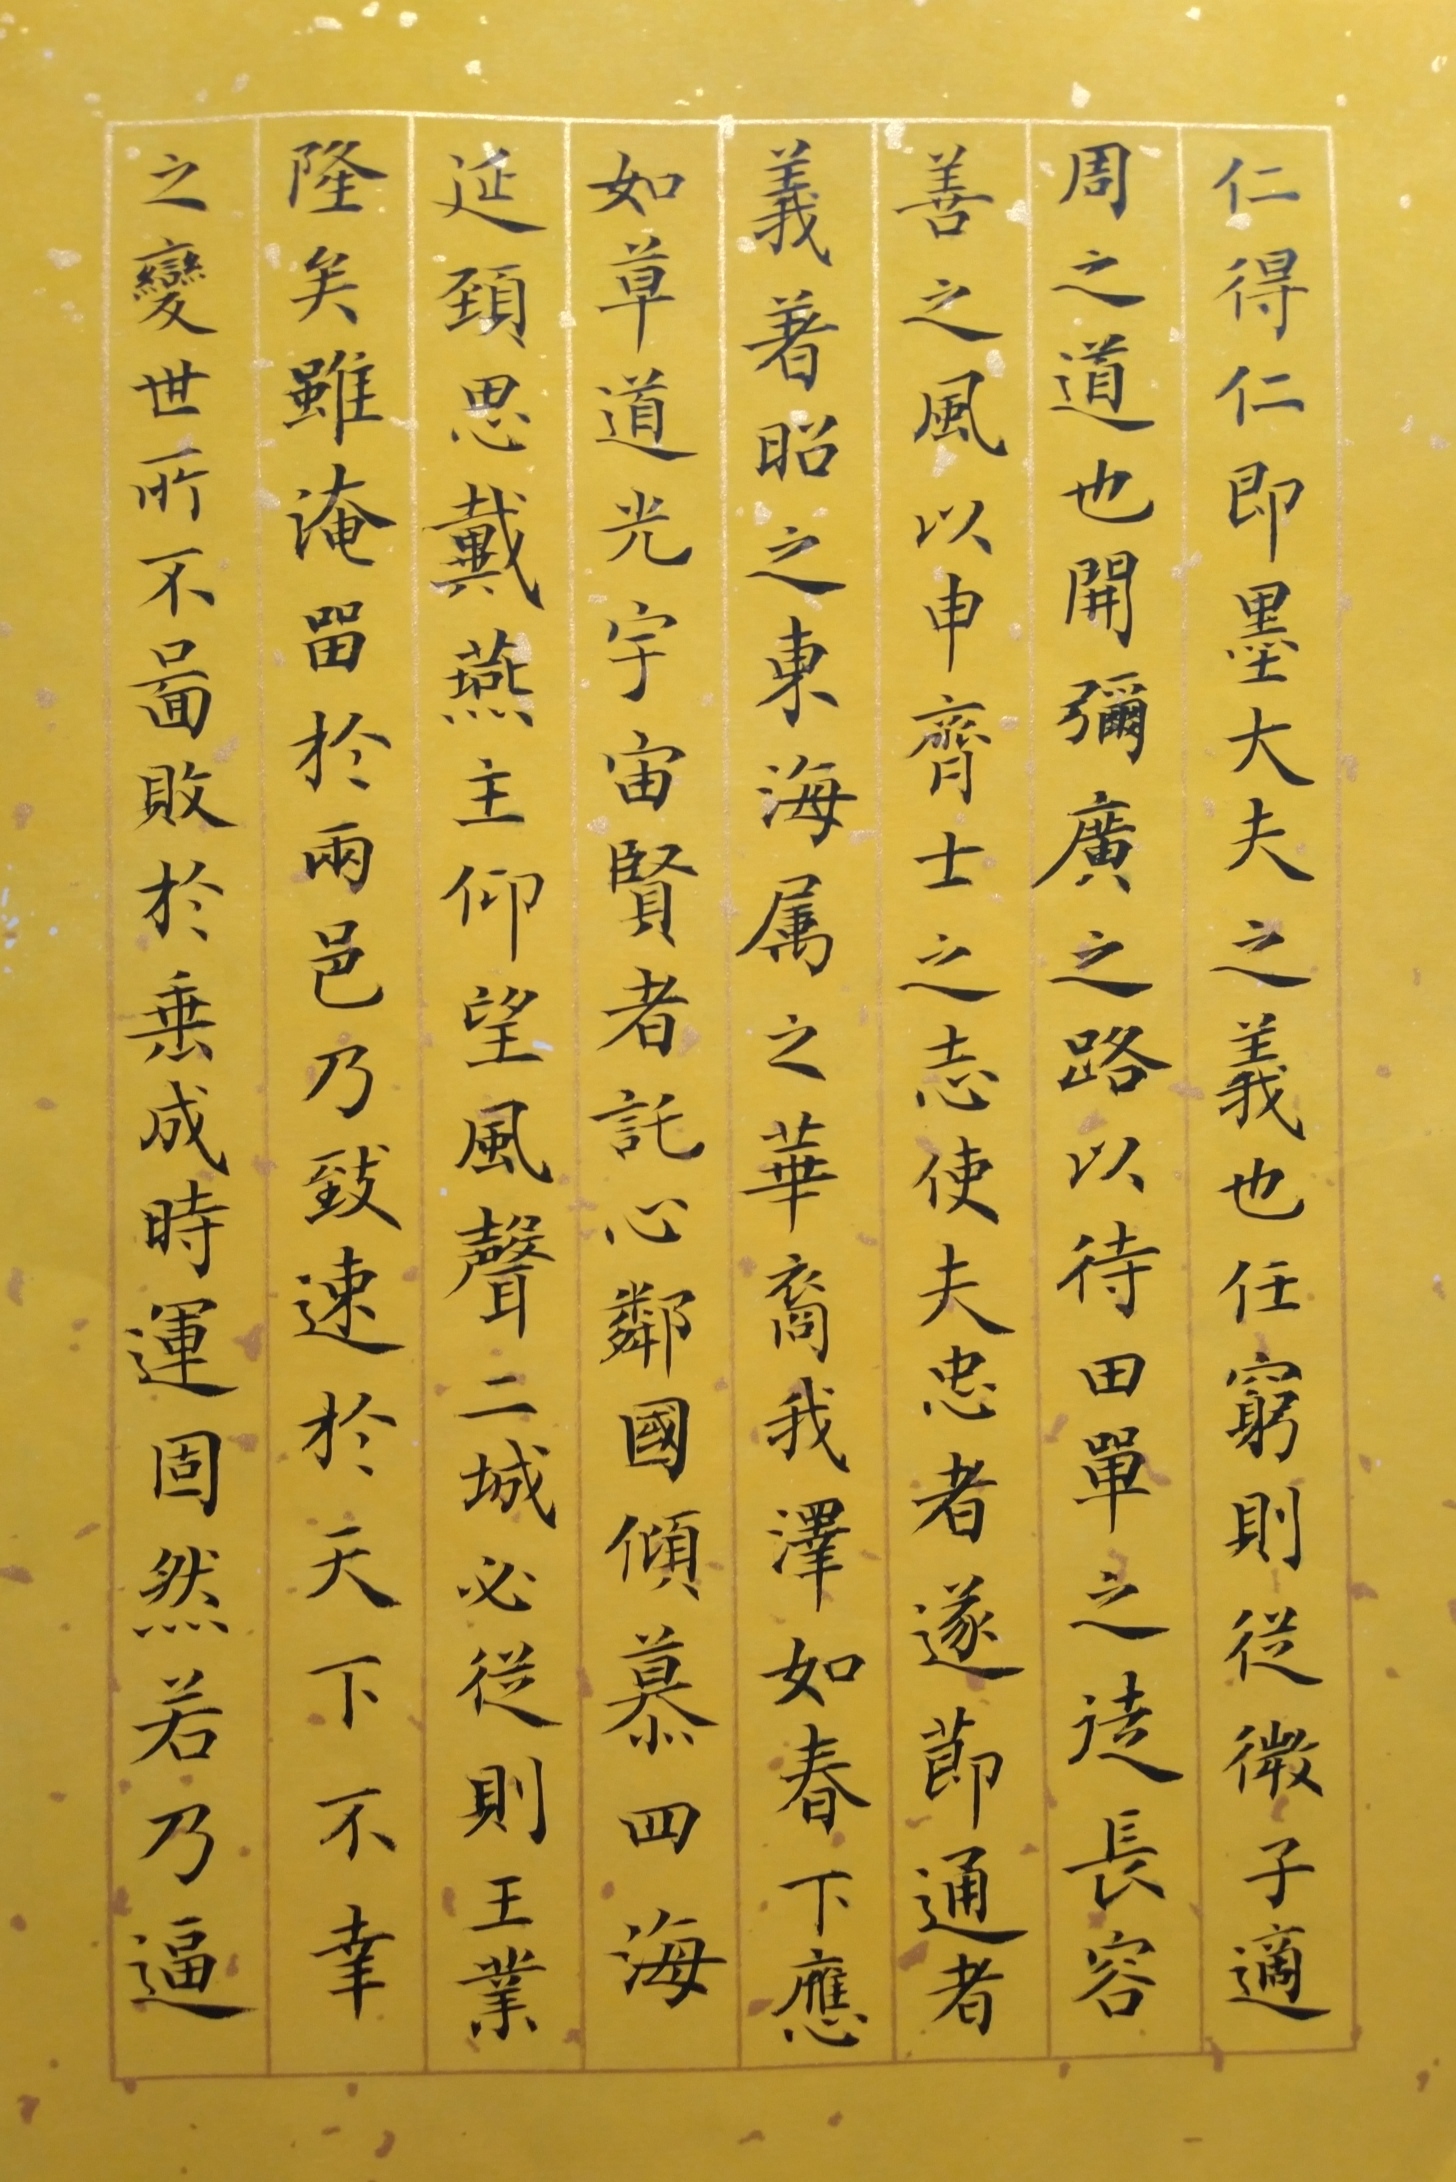 仁得仁仁即墨大夫之義也任窮則從微子適
周之道也開彌廣之路以待田單之徒長容
善之風以申齊士之志使夫忠者遂莭通者
義著昭之東海属之華裔我澤如春下應
如草道光宇宙賢者託心鄰國傾慕四海
延頚思戴燕主仰望風聲二城必從則王業
隆矣雖淹畱於兩邑乃致速於天下不幸
之變世所不啚敗於垂成時運固然若乃逼